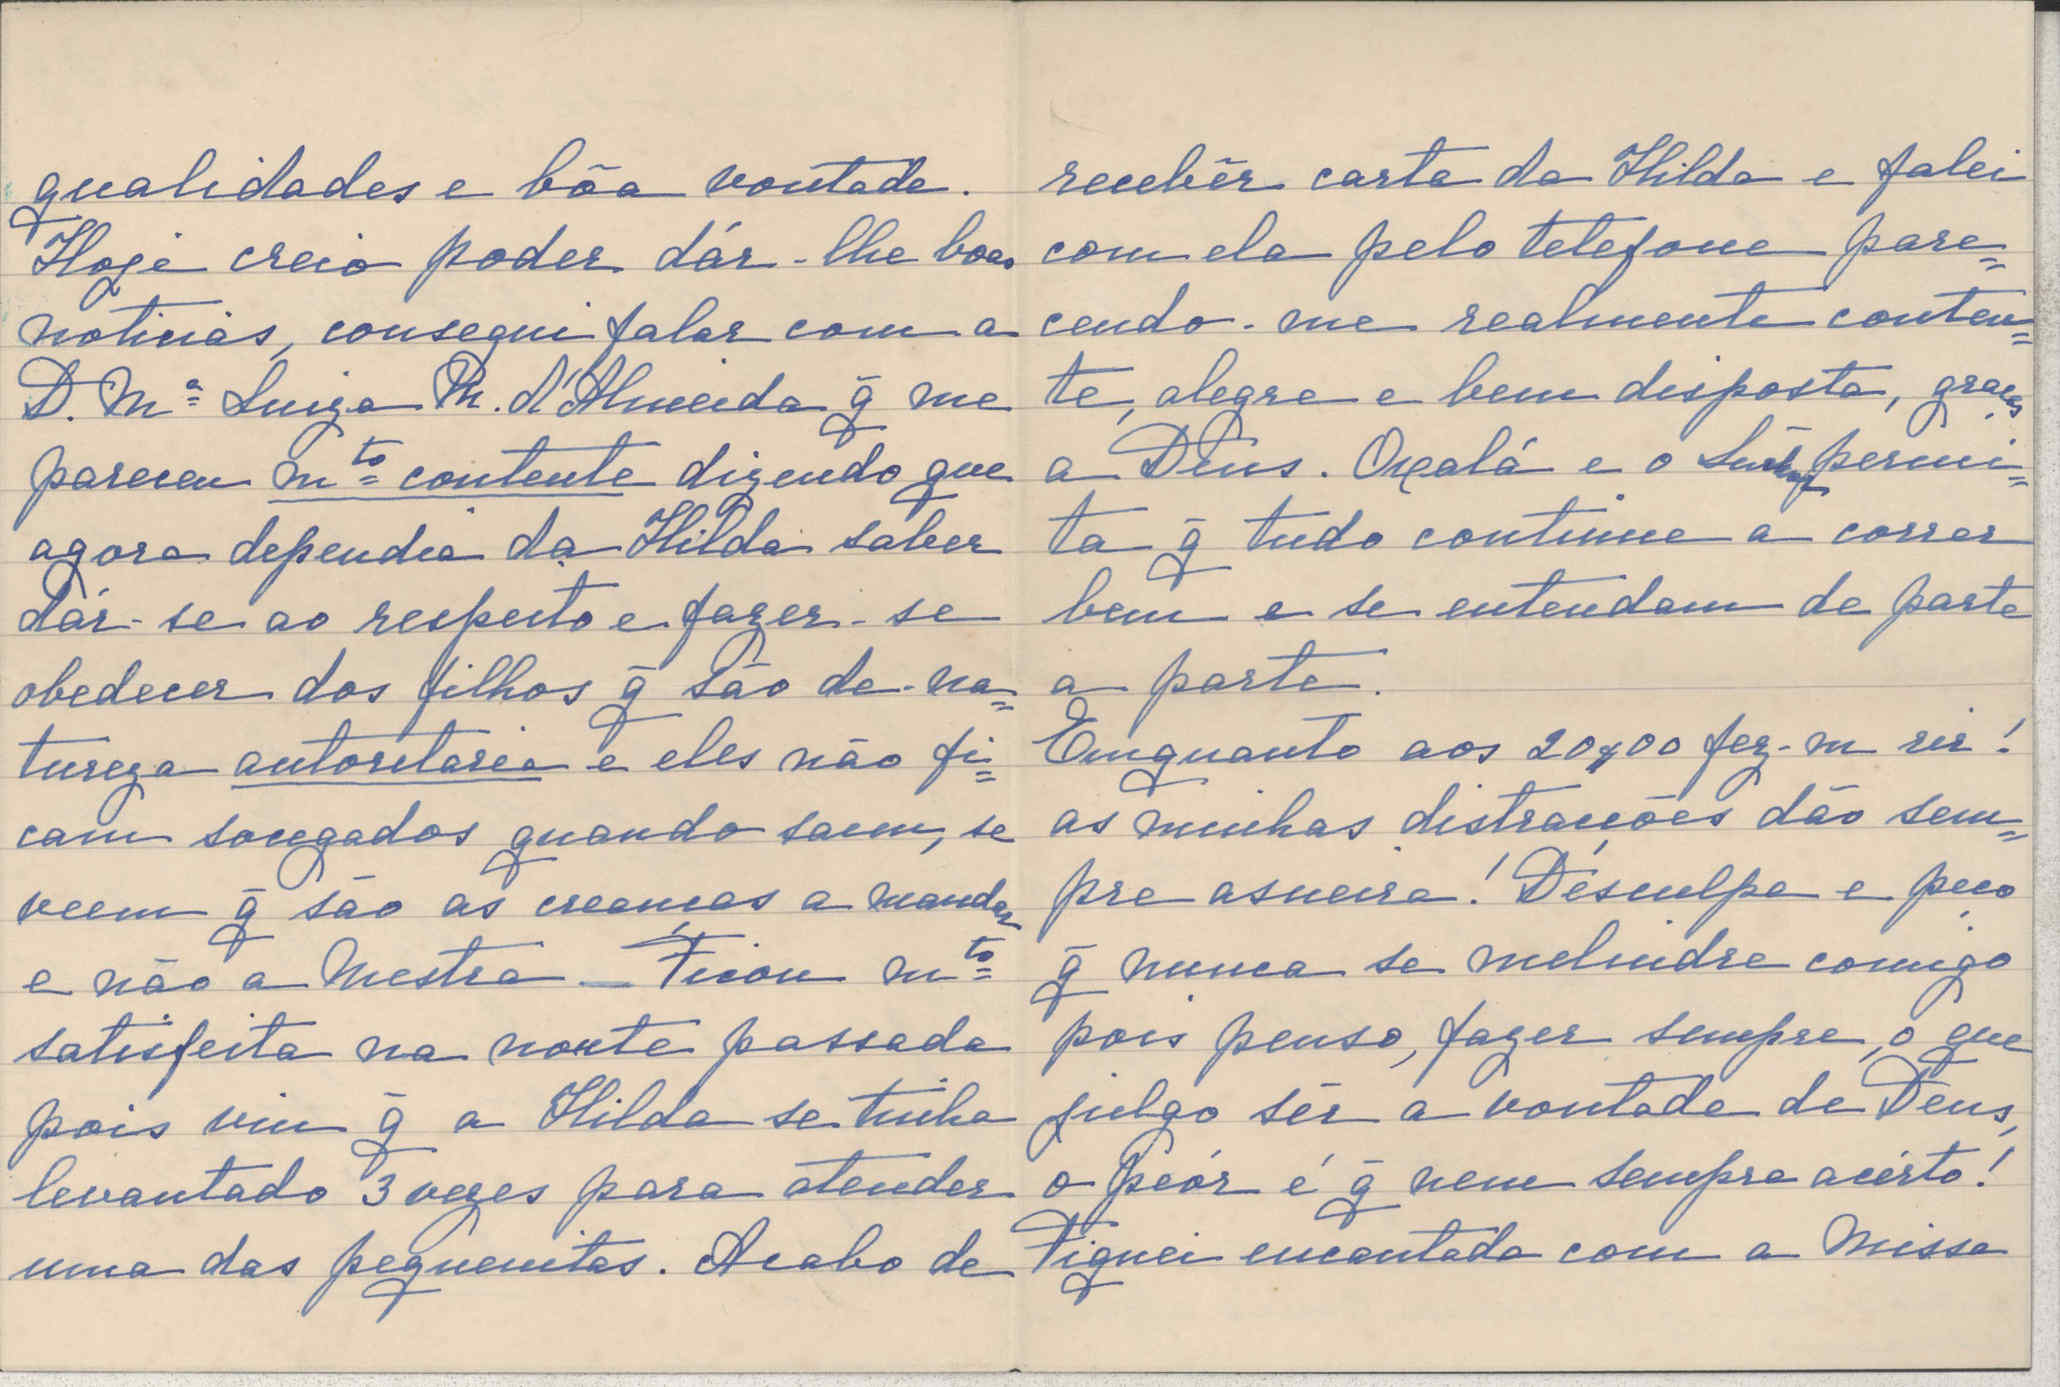 qualidades e bôa vontade.
Hoje creio poder dár-lhe boas
noticias, consegui falar com a
D. Mª Luiza M. d'Almeida q̃ me
pareceu mto contente dizendo que
agora dependia da Hilda saber
dár-se ao respeito e fazer-se
obedecer dos filhos q̃ são de na=
tureza autoritaria e eles não fi=
cam socegados quando saem, se
veem q̃ são as creanças a mandar
e não a Mestra — Ficou mto
satisfeita na noite passada
pois viu q̃ a Hilda se tinha
levantado 3 vezes para atender
uma das pequenitas. Acabo de
recebêr carta da Hilda e falei
com ela pelo telefone pare=
cendo-me realmente conten=
te, alegre e bem disposta, graças
a Deus. Oxalá e o permi=
ta q̃ tudo continue a correr
bem e se entendam de parte
a parte.
Emquanto aos 20$00 fez-m rir!
as minhas distracções dão sem=
pre asneira! Désculpe e peço
q̃ nunca se melindre comigo
pois penso, fazer sempre, o que
julgo sêr a vontade de Deus,
o peór é q̃ nem sempre acérto!
Fiquei encantada com a Missa